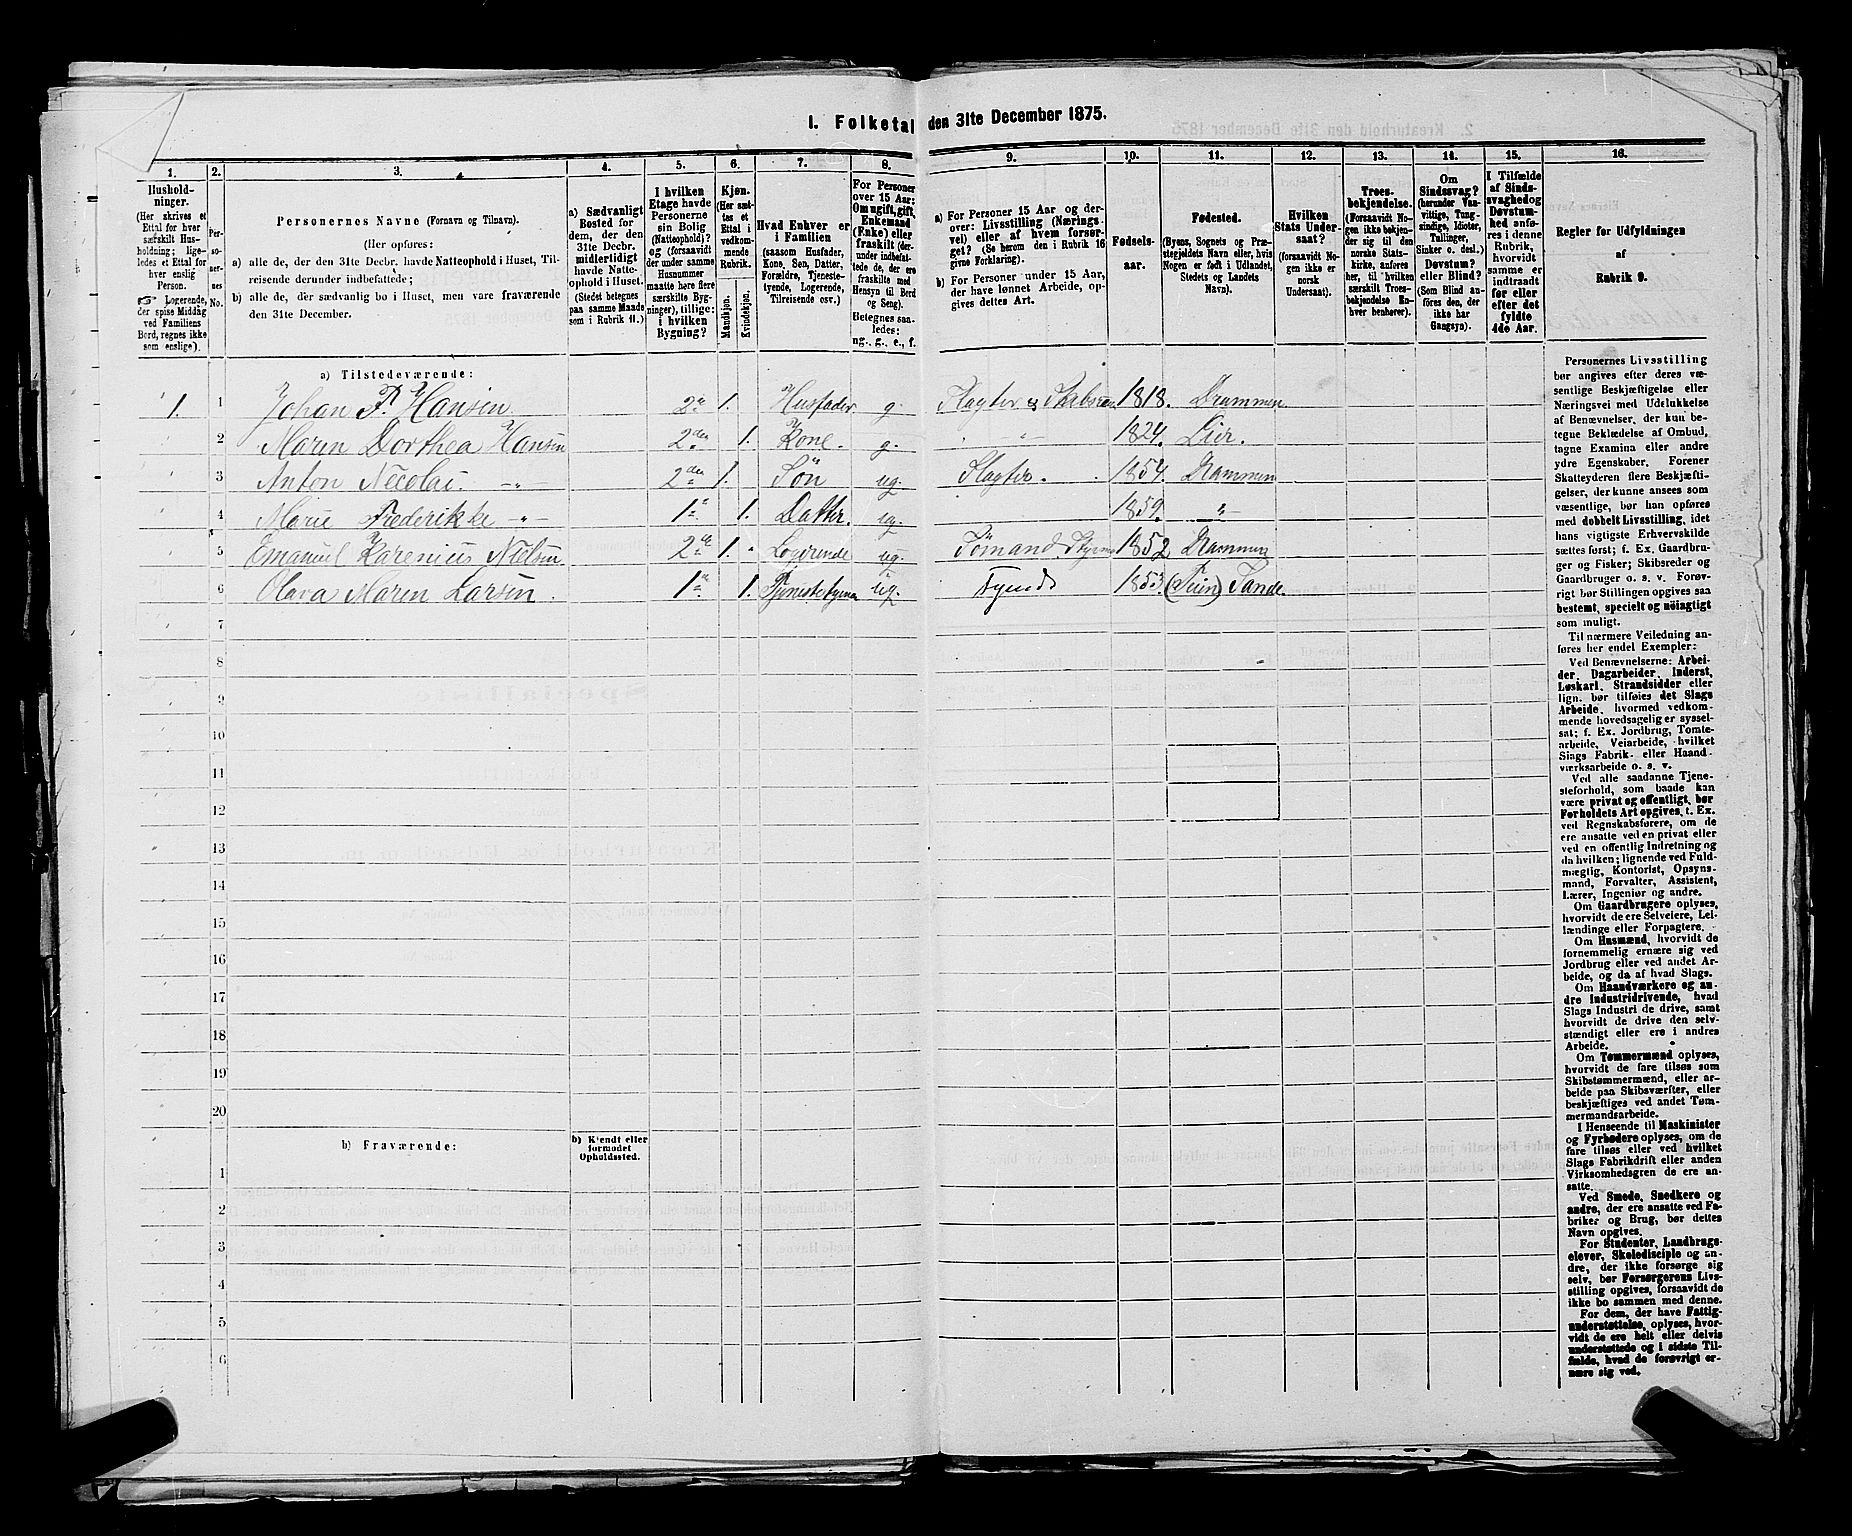 I. Folketal den 31te December 1875.
1. 2. 3. 4. 5. 6. 7. 8. 9. 10. 11. 12. 13. 14. 15. 16.
Husholdninger.
(Her skrives et
Ettal for hver
særskilt Husholdning;
ligeledes et Ettal for
hver enslig
Person.
Logerende,
der spise Middag
ved Familiens
Bord, regnes ikke
som enslige).
Personernes No.
Personernes Navne (Fornavn og Tilnavn).
(Her opføres:
a) alle de, der den 31te Decbr. havde Natteophold i Huset, Tilreisende derunder indbefattede;
b) alle de, der sædvanlig bo i Huset, men vare fraværende
den 31te December.
a) Sædvanligt
Bosted for
dem, der den
31te Decbr.
midlertidigt
havde Natteophold i Huset.
(Stedet betegnes
paa samme Maade
som i Rubrik 11.)
I hvilken
Etage havde
Personerne
sin Bolig
(Natteophold)?
og (forsaavidt
der under samme
Husnummer
maatte høre flere
særskilte Bygninger), tillige:
i hvilken
Bygning?
Kjøn.
(Her sættes et
Ettal i
vedkommende
Rubrik.
Mandkjøn. Kvindekjøn.
Hvad Enhver er
i Familien
(saasom Husfader,
Kone, Søn, Datter,
Forældre, Tjenestetyende, Logerende,
Tilreisende osv.)
For Personer
over 15 Aar:
Om ugift, gift,
Enkemand
(Enke) eller
fraskilt (derunder indbefattede de, der ere
fraskilte med
Hensyn til Bord
og Seng).
Betegnes saaledes:
ug., g., e., f.
a) For Personer 15 Aar og derover: Livsstilling (Næringsvei) eller af hvem forsørget? (Se herom den i Rubrik 16
givne Forklaring).
b) For Personer under 15 Aar,
der have lønnet Arbeide, opgives dettes Art.
Fødselsaar.
Fødested.
(Byens, Sognets og Præstegjeldets Navn eller, hvis
Nogen er født i Udlandet,
Stedets og Landets
Navn).
Hvilken
Stats Undersaat?
(forsaavidt Nogen ikke er
norsk
Undersaat).
Troesbekjendelse.
(Forsaavidt Nogen ikke bekjender sig til den
norske Statskirke, anføres
her, til hvilken
særskilt Troesbekjendelse Enhver henhører).
Om
Sindssvag?
(herunder Vanvittige, Tungsindige, Idioter,
Tullinger,
Sinker o. desl.)
Døvstum?
eller Blind?
(Som Blind anføres den, der
ikke har
Gangsyn).
I Tilfælde
af Sindssvaghed og
Døvstumhed anføres i denne
Rubrik,
hvorvidt
samme er
indtraadt
før eller
efter det
fyldte
4de Aar.
Regler for Udfyldningen
af
Rubrik 9.
a) Tilstedeværende:
1. 1 Johan P. Hansen 2a 1. Husfader g. Slagter 1818. Drammen
2 Maren Dorthea Hansen 2den 1. Kone. g. -"- 1824. Lier.
3 Anton Nicolai. -"- 2den 1. Søn ug. Slagter. 1854. Drammen
4 Marie Frederikke -"- 1a 1. Datter. ug. 1859. "
5 Emanuel Karenius Nielsen 2de 1. Logerende ug. Sömand. 1852 Drammen
6 Olava Maren Larsen. 1a 1. ug. Tyende 1853. Sande.
7
8
9
10
11
12
13
14
15
16
17
18
19
20
b) Fraværende: b) Kjendt eller
formodet
Opholdssted.
1
2
3
4
5
6
Personernes Livsstilling
bør angives efter deres væsentlige Beskjæftigelse eller
Næringsvei med Udelukkelse
af Benævnelser, der kun betegne Beklædelse af Ombud,
tagne Examina eller andre
ydre Egenskaber. Forener
Skatteyderen flere Beskjæftigelser, der kunne ansees som
væsentlige, bør han opføres
med dobbelt Livsstilling, idet
hans vigtigste Erhvervskilde
sættes først; f. Ex. Gaardbruger og Fisker; Skibsreder og
Gaardbruger o. s. v. Forøvrigt bør Stillingen opgives saa
bestemt, specielt og nøiagtigt
som muligt.
Til nærmere Veiledning anføres her endel Exempler:
Ved Benævnelserne: Arbeider, Dagarbeider, Inderst,
Løskarl, Strandsidder eller
lign. bør tilføies det Slags
Arbeide, hvormed vedkommende hovedsagelig er sysselsat; f. Ex. Jordbrug, Tomtearbeide, Veiarbeide, hvilket
Slags Fabrik- eller Haandværksarbeide o. s. v.
Ved alle saadanne Tjenesteforhold, som baade kan
være privat og offentligt, bør
Forholdets Art opgives, t. Ex.
ved Regnskabsførere, om de
ere ansatte ved en privat eller
ved en offentlig Indretning og
da hvilken; lignende ved Fuldmægtig, Kontorist, Opsynsmand, Forvalter, Assistent,
Lærer, Ingeniør og andre.
Om Gaardbrugere oplyses,
hvorvidt de ere Selveiere, Leilændinge eller Forpagtere.
Om Husmænd, hvorvidt de
fornemmelig ernære sig ved
Jordbrug eller ved andet Arbeide, og da af hvad Slags.
Om Haandværkere og andre Industridrivende, hvad
Slags Industri de drive, samt
hvorvidt de drive den selvstændigt eller ere i andres
Arbeide.
Om Tømmermænd oplyses,
hvorvidt de fare tilsøs som
Skibstømmermænd, eller arbeide paa Skibsværfter, eller
beskjæftiges ved andet Tømmermandsarbeide.
I Henseende til Maskinister
og Fyrbødere oplyses, om de
fare tilsøs eller ved hvilket
Slags Fabrikdrift eller anden
Virksomhedsgren de ere ansatte.
Ved Smede, Snedkere og
andre, der ere ansatte ved Fabriker og Brug, bør dettes
Navn opgives.
For Studenter, Landbrugselever, Skoledisciple og andre, der ikke forsørge sig
selv, bør Forsørgerens Livsstilling opgives, forsaavidt de
ikke bo sammen med denne.
For dem, der have Fattigunderstøttelse, oplyses, hvorvidt de ere helt eller delvis
understøttede og i sidste Tilfælde, hvad de forøvrigt ernære sig ved.